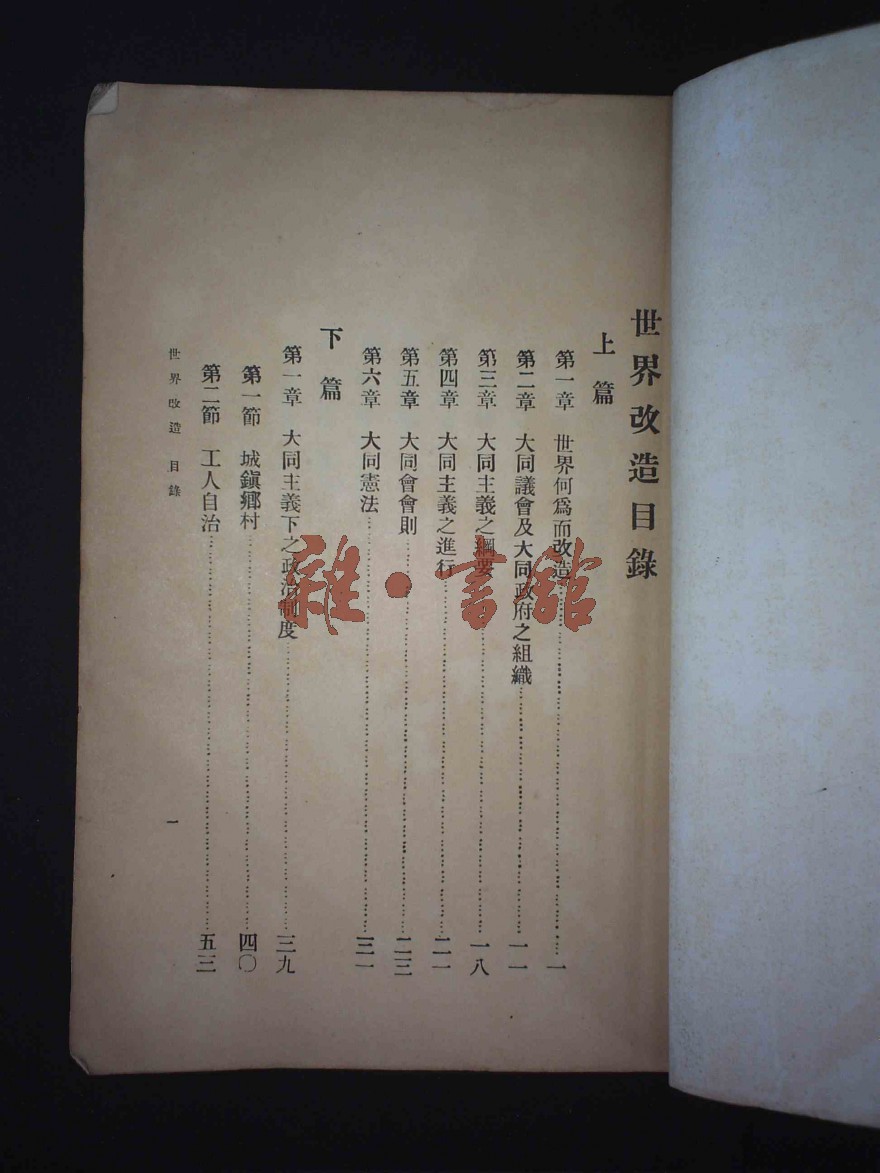 世界改造目錄
上篇
第一章 世界何爲而改造……一
第二章 大同議會及大同政府之組織……一一
第三章 大同主義之綱要……一八
第四章 大同主義之進行……二一
第五章 大同會會則……二三
第六章 大同憲法……三一
下篇
第一章 大同主義下之政治制度……三九
第一節 城鎭鄉村……四〇
第二節 工人自治……五三
世界改造 目錄
一
雜·書館